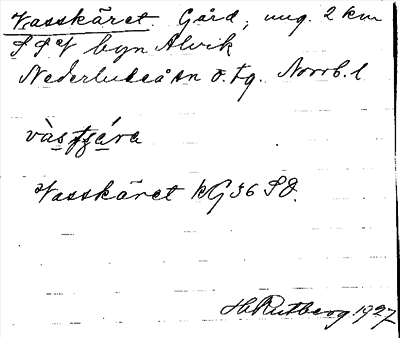 Vasskäret. Gård, ung. 2 km
SSV byn Alvik
Nederluleå sn o. tg. Norrb. l
Vasskäret kG 36 SO.
H. Rutberg 1927